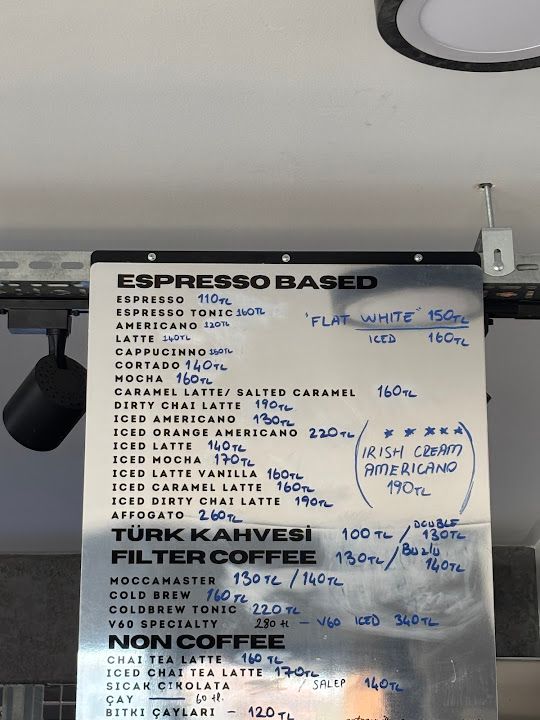 ESPRESSO BASED
ESPRESSO 110TL
ESPRESSO TONIC 160TL
AMERICANO 120TL
"FLAT WHITE" 150TL
LATTE 140TL
ICED 160TL
CAPPUCINNO 160TL
CORTADO 140TL
MOCHA 160TL
CARAMEL LATTE/ SALTED CARAMEL 160TL
DIRTY CHAI LATTE 190TL
ICED AMERICANO 130TL
ICED ORANGE AMERICANO 220TL
ICED LATTE 140TL
ICED MOCHA 170TL
ICED LATTE VANILLA 160TL
ICED CARAMEL LATTE 160TL
ICED DIRTY CHAI LATTE 190TL
AFFOGATO 260TL
IRISH CREAM
AMERICANO
190TL
TÜRK KAHVESİ 100TL / DOUBLE 130TL
FILTER COFFEE 130TL / BUZLU 140TL
MOCCAMASTER 130TL / 140TL
COLD BREW 160TL
COLDBREW TONIC 220TL
V60 SPECIALTY 280 tl - V60 ICED 340TL
NON COFFEE
CHAI TEA LATTE 160 TL
ICED CHAI TEA LATTE 170TL
SICAK ÇIKOLATA / SALEP 140TL
ÇAY 60 tl.
BITKI ÇAYLARI - 120TL